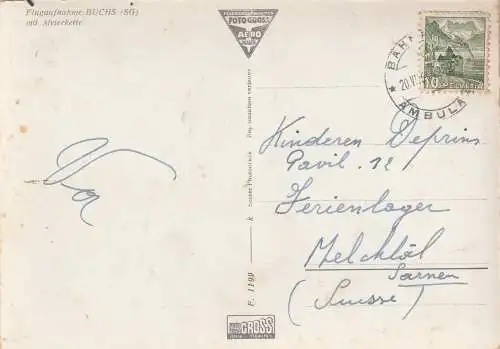 Flugaufnahme BUCHS (SG)
mit Alvierkette
FOTO GROSS
AERO
Va
Kinderen Deprins
Pavil. 12
Ferienlager
Melchtal
Sarnen
(Suisse)
BAHN
AMBULA
20.VI
10
HELVETIA
F. 1199
GROSS